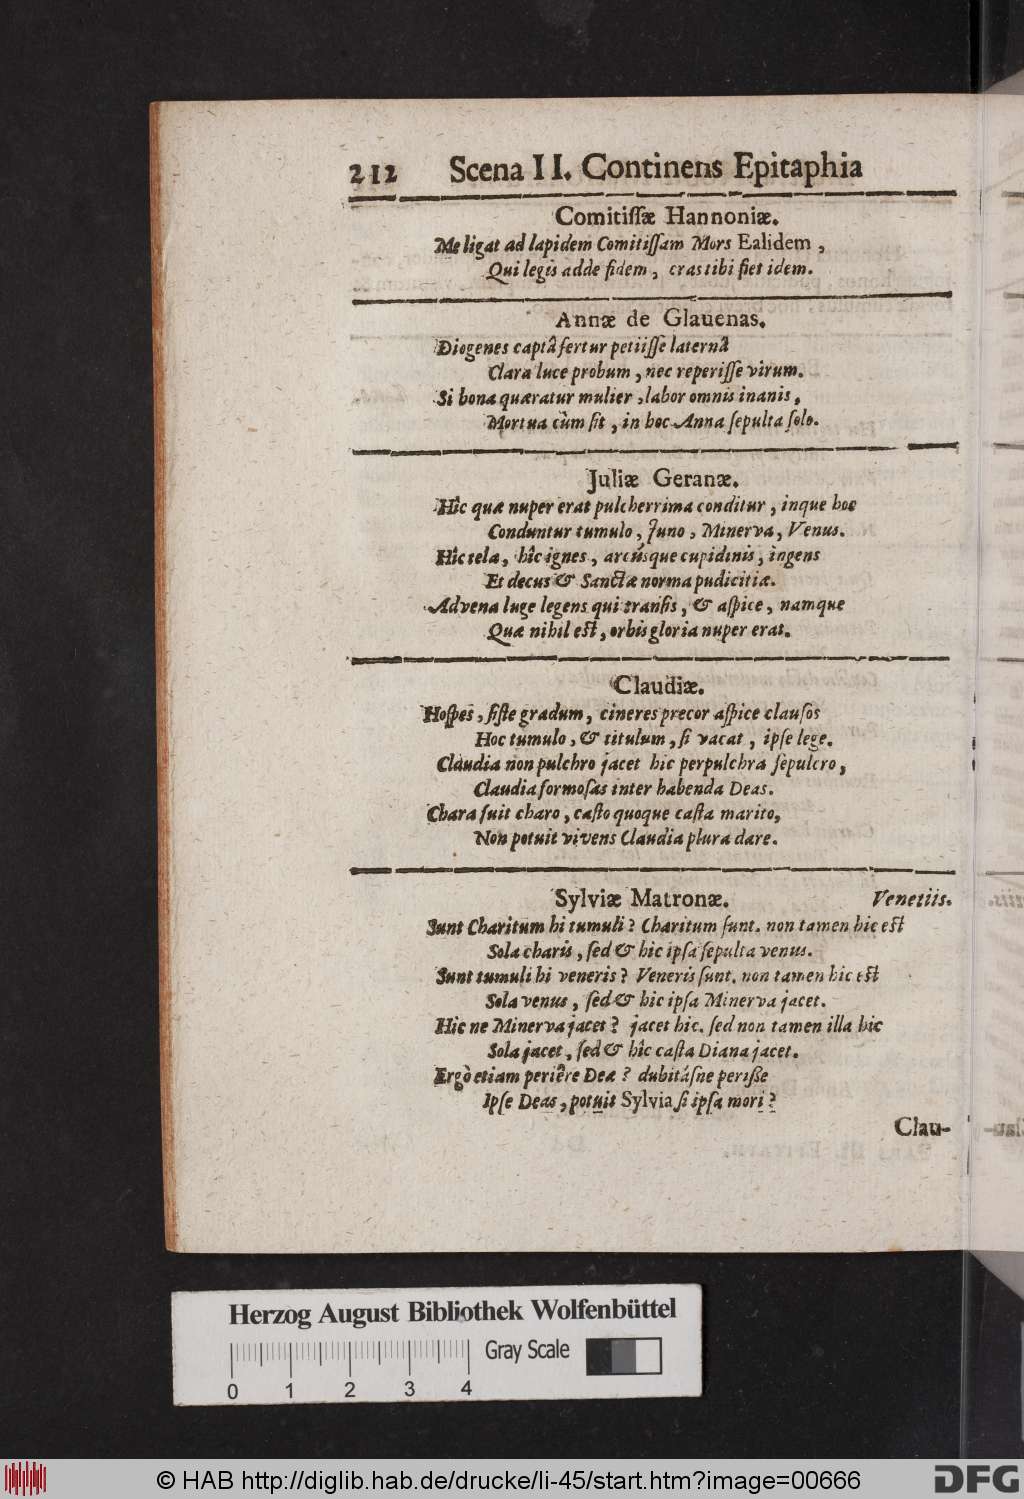 212 Scena II. Continens Epitaphia
Comitiſſæ Hannoniæ.
Me ligat ad lapidem Comitiſſam Mors Ealidem,
Qui legis adde fidem, cras tibi fiet idem.
Annæ de Glauenas.
Diogenes captâ fertur petiiſſe laternâ
Clara luce probum, nec reperiſſe virum.
Si bona quæratur mulier, labor omnis inanis,
Mortua cùm ſit, in hoc Anna ſepulta ſolo.
Juliæ Geranæ.
Hîc quæ nuper erat pulcherrima conditur, inque hoc
Conduntur tumulo, Juno, Minerva, Venus.
Hîc tela, hîc ignes, arcúsque cupidinis, ingens
Et decus & Sanctæ norma pudicitiæ.
Advena luge legens qui tranſis, & aſpice, namque
Quæ nihil eſt, orbis gloria nuper erat.
Claudiæ.
Hoſpes, ſiſte gradum, cineres precor aſpice clauſos
Hoc tumulo, & titulum, ſi vacat, ipſe lege.
Claudia non pulchro jacet hic perpulchra ſepulcro,
Claudia formoſas inter habenda Deas.
Chara fuit charo, caſto quoque caſta marito,
Non potuit vivens Claudia plura dare.
Sylviæ Matronæ. Venetiis.
Sunt Charitum hi tumuli? Charitum ſunt. non tamen hic eſt
Sola charis, ſed & hic ipſa ſepulta venus.
Sunt tumuli hi veneris? Veneris ſunt. non tamen hic eſt
Sola venus, ſed & hic ipſa Minerva jacet.
Hic ne Minerva jacet? jacet hic. ſed non tamen illa hic
Sola jacet, ſed & hîc caſta Diana jacet.
Ergò etiam periêre Deæ? dubitáſne periſſe
Ipſe Deas, potuit Sylvia ſi ipſa mori?
Clau-
Herzog August Bibliothek Wolfenbüttel
Gray Scale
0 1 2 3 4
© HAB http://diglib.hab.de/drucke/li-45/start.htm?image=00666
DFG